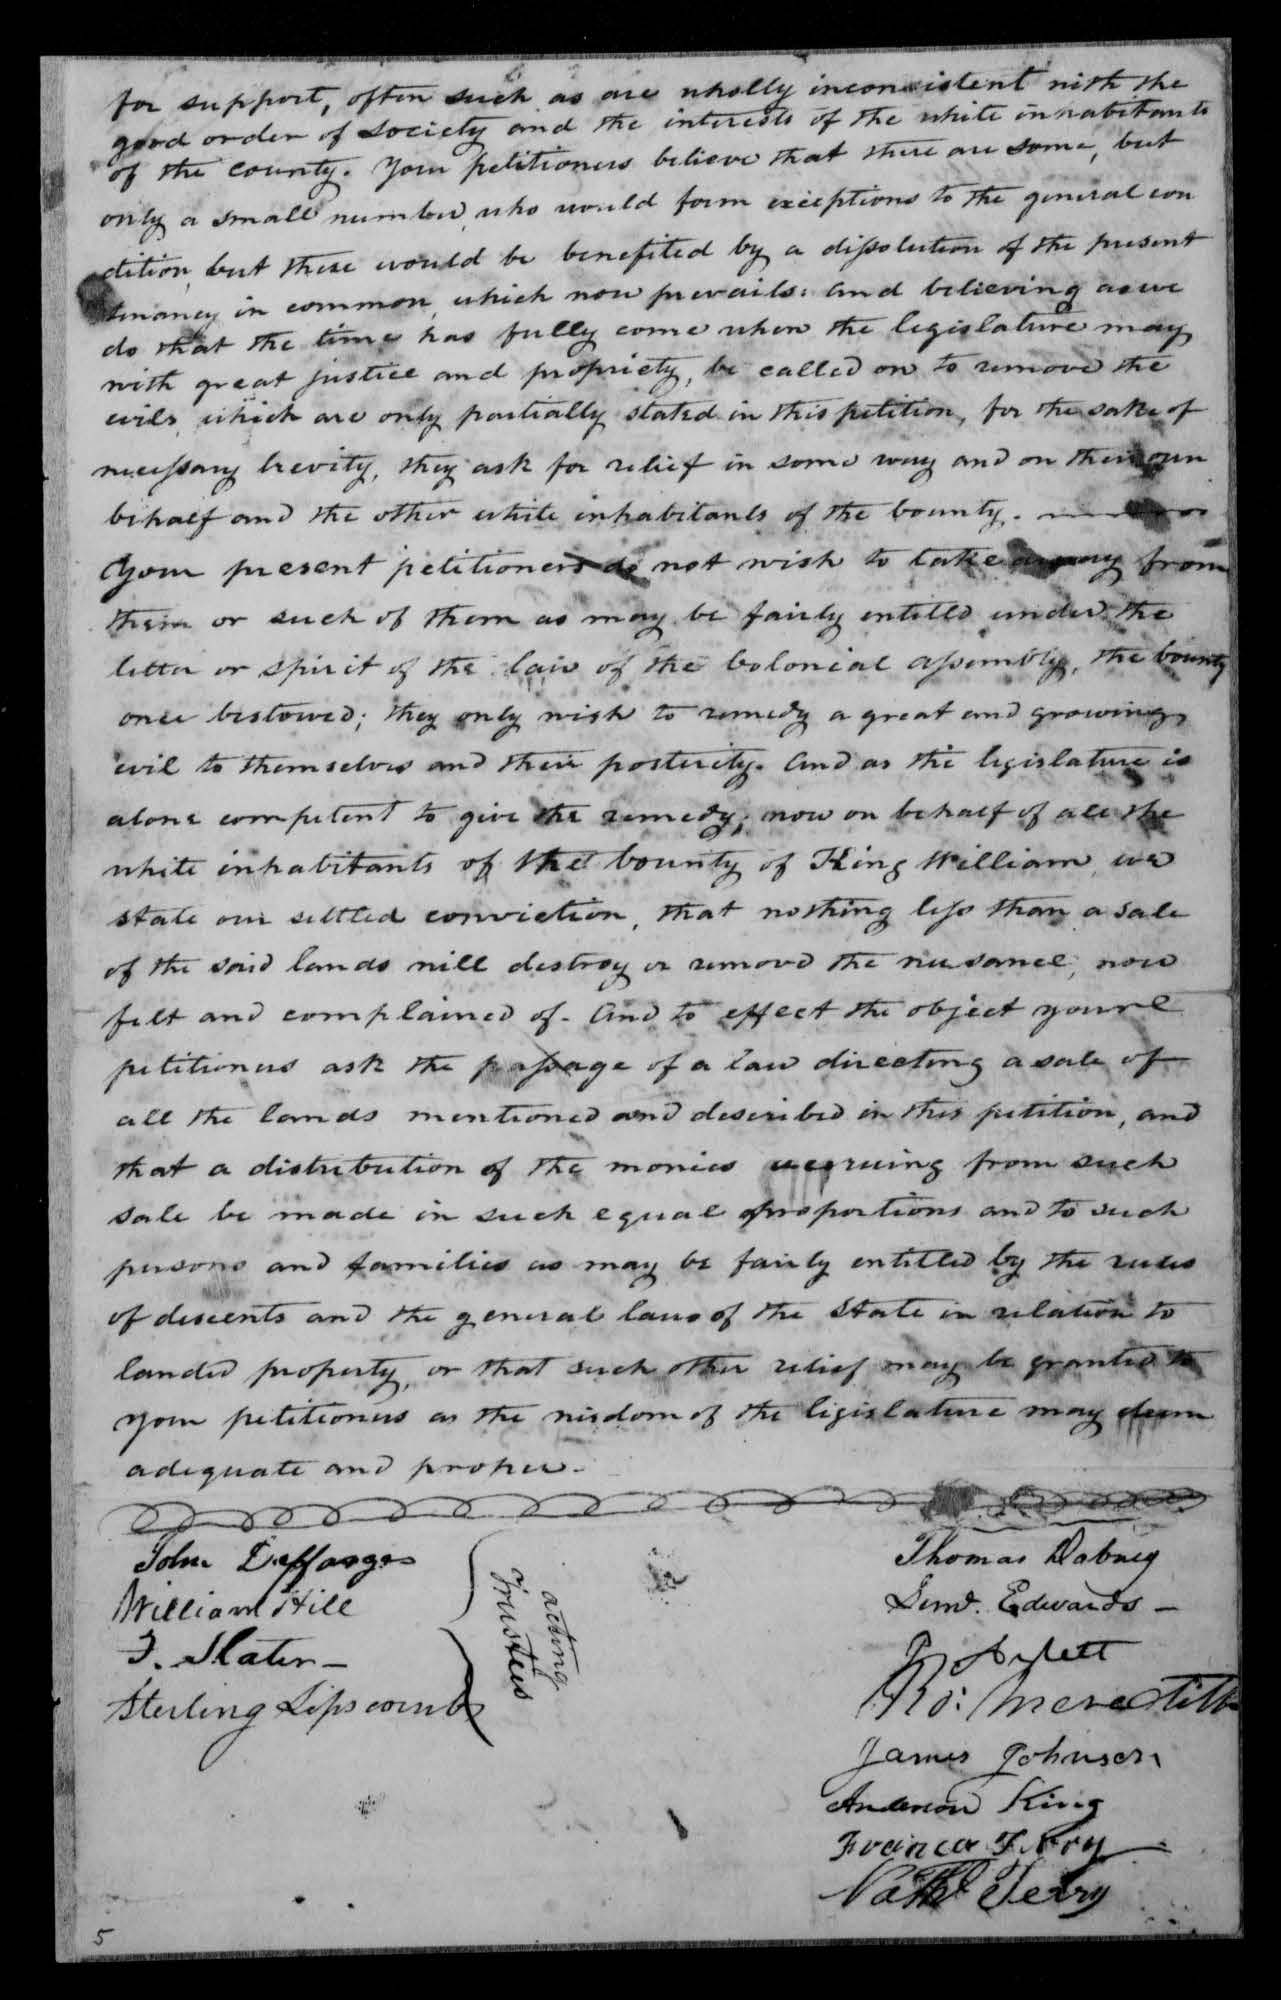 for support, often such as are wholly inconsistent with the
good order of society and the interests of the white inhabitants
of the county. Your petitioners believe that there are some, but
only a small number, who would form exceptions to the general con
dition, but these would be benefited by a dissolution of the present
tenancy in common, which now prevails: and believing as we
do that the time has fully come when the legislature may
with great justice and propriety, be called on to remove the
evils, which are only partially stated in this petition, for the sake of
necessary brevity, they ask for relief in some way and on their own
behalf and the other white inhabitants of the County.
Your present petitioners do not wish to take away from
them or such of them as may be fairly entitled under the
letter or spirit of the law of the Colonial assembly, the bounty
once bestowed; they only wish to remedy a great and growing
evil to themselves and their posterity. And as the legislature is
alone competent to give the remedy; now on behalf of all the
white inhabitants of the County of King William, we
state our settled conviction, that nothing less than a sale
of the said lands will destroy or remove the nusance, now
felt and complained of. And to effect the object your
petitioners ask the passage of a law directing a sale of
all the lands mentioned and described in this petition, and
that a distribution of the monies accruing from such
sale be made in such equal proportions and to such
persons and families as may be fairly entitled by the rules
of descents and the general laws of the State in relation to
landed property, or that such other relief may be granted to
your petitioners as the wisdom of the legislature may deem
adequate and proper.
John
William Hill
F. Slater
Sterling Lipscomb
acting
Trustees
Thomas Dabney
Edwards
Aylett
Ro: Meredith
James Johnson
Anderson King
Terry
Nathl Terry
5